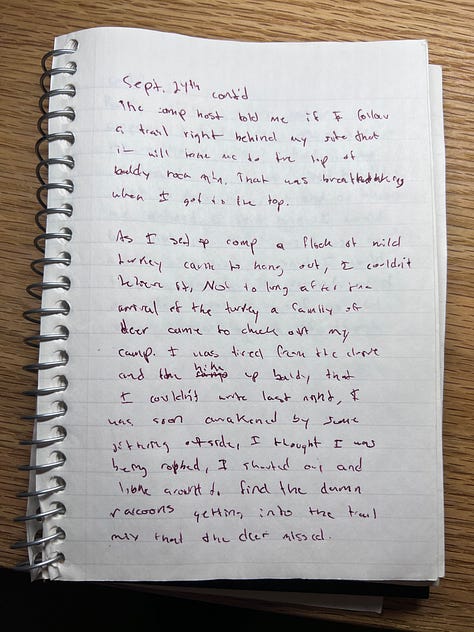 Sept. 24th cont'd
The camp host told me if I follow
a trail right behind my site that
it will take me to the top of
baldy rock mtn. That was breathtaking
when I got to the top.
As I set up camp a flock of wild
turkey came to hang out, I couldn't
believe it, Not to long after the
arrival of the turkey a family of
deer came to check out my
camp. I was tired from the drive
and the hike up baldy that
I couldn't write last night, I
was soon awakened by some
jittering outside, I thought I was
being robbed, I shouted out and
look around to find the damn
racoons getting into the trail
mix that the deer missed.